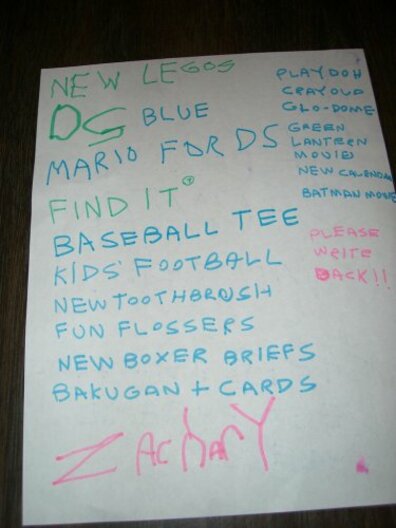 NEW LEGOS
DS BLUE
MARIO FOR DS
FIND IT
BASEBALL TEE
KIDS' FOOTBALL
NEW TOOTHBRUSH
FUN FLOSSERS
NEW BOXER BRIEFS
BAKUGAN + CARDS
ZACHARY
PLAYDOH
CRAYOLA
GLO-DOME
GREEN
LANTERN
MOVIE
NEW CALENDAR
BATMAN MOVIE
PLEASE
WRITE
BACK!!